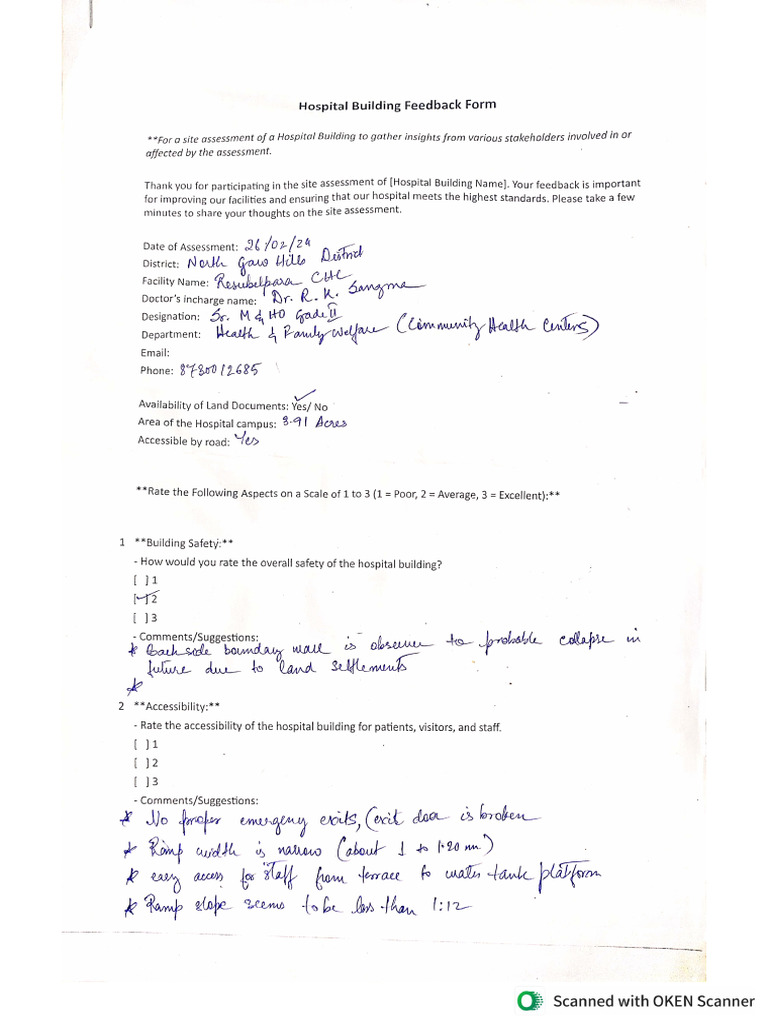 Hospital Building Feedback Form
**For a site assessment of a Hospital Building to gather insights from various stakeholders involved in or
affected by the assessment.
Thank you for participating in the site assessment of [Hospital Building Name]. Your feedback is important
for improving our facilities and ensuring that our hospital meets the highest standards. Please take a few
minutes to share your thoughts on the site assessment.
Date of Assessment: 26/02/24
District: North Garo Hills District
Facility Name: Resubelpara CHC
Doctor's incharge name: Dr. R. K. Sangma
Designation: Sr. M & HO Gade II
Department: Health & Family Welfare (Community Health Centers)
Email:
Phone: 8730012685
Availability of Land Documents: Yes/ No
Area of the Hospital campus: 3.91 Acres
Accessible by road: Yes
**Rate the Following Aspects on a Scale of 1 to 3 (1 = Poor, 2 = Average, 3 = Excellent):**
1 **Building Safety:**
- How would you rate the overall safety of the hospital building?
[ ] 1
[✓] 2
[ ] 3
- Comments/Suggestions:
* Back side boundary wall is observe to probable collapse in
future due to land settlements
*
2 **Accessibility:**
- Rate the accessibility of the hospital building for patients, visitors, and staff.
[ ] 1
[ ] 2
[ ] 3
- Comments/Suggestions:
* No proper emergency exits, (exit door is broken
* Ramp width is narrow (about 1 to 1.20 mm)
* easy access for staff from terrace to water tank platform
* Ramp slope seems to be less than 1:12
Scanned with OKEN Scanner